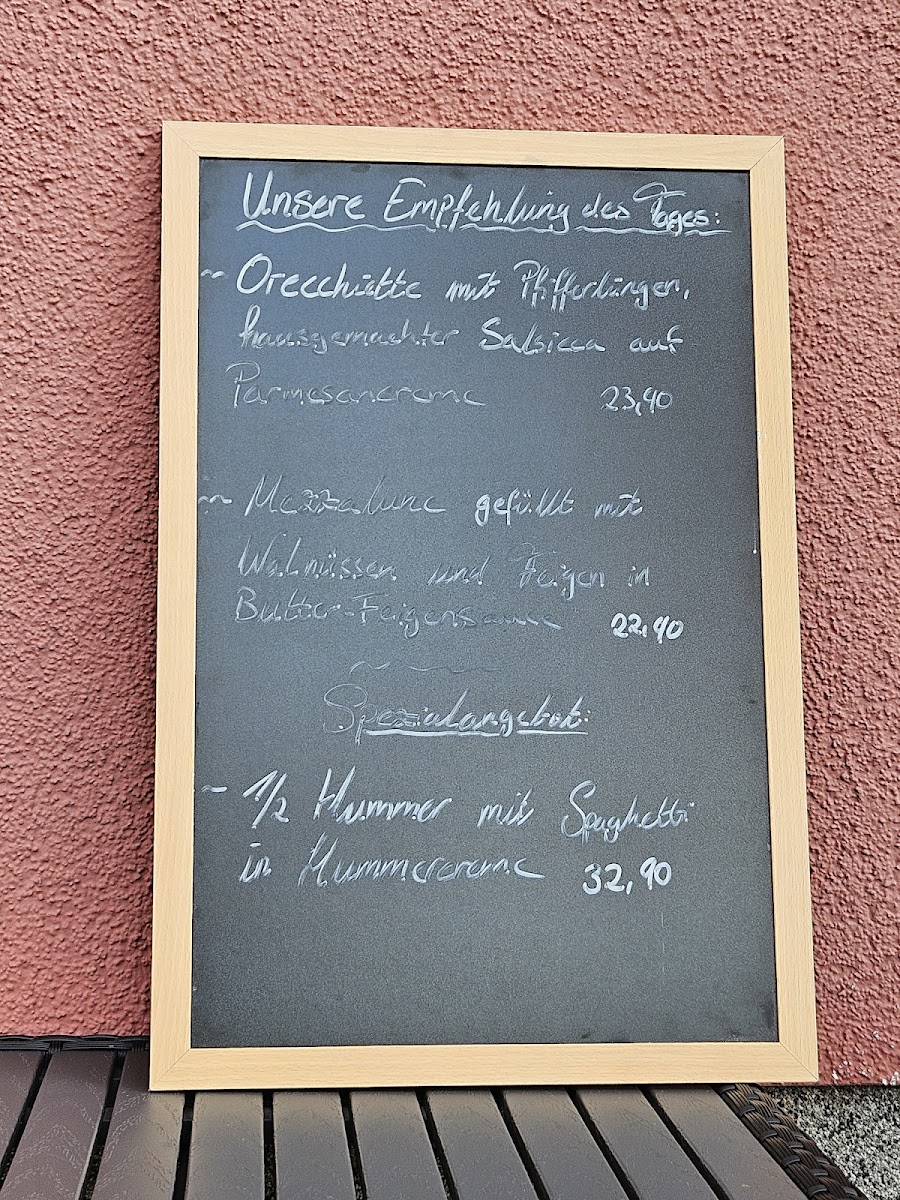 Unsere Empfehlung des Tages:
~ Orecchiette mit Pfifferlingen,
hausgemachter Salsicca auf
Parmesancreme 23,90
~ Mezzalune gefüllt mit
Walnüssen und Feigen in
Butter-Feigensauce 22,90
~ ~~~
Spezialangebot:
~ 1/2 Hummer mit Spaghetti
in Hummercreme 32,90